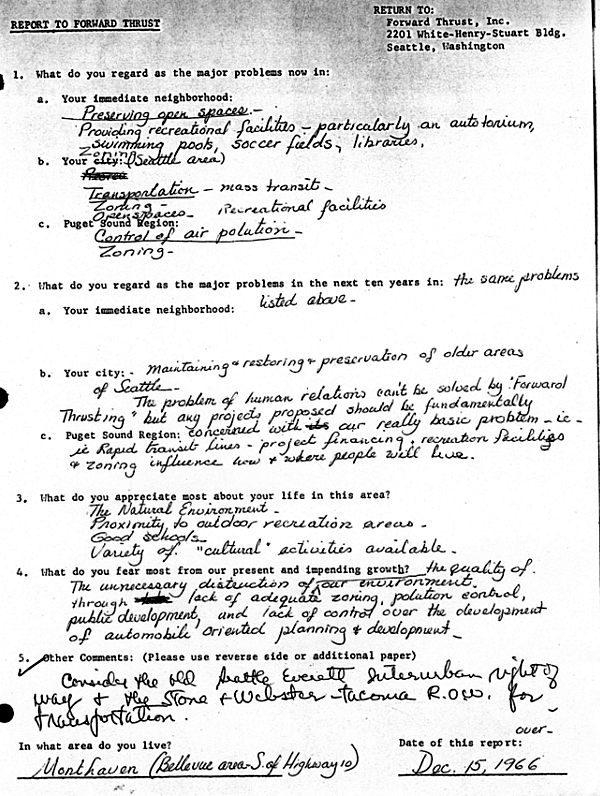 REPORT TO FORWARD THRUST
RETURN TO:
Forward Thrust, Inc.
2201 White-Henry-Stuart Bldg.
Seattle, Washington
1. What do you regard as the major problems now in:
a. Your immediate neighborhood:
Preserving open spaces.-
Providing recreational facilities - particularly an autotorium,
swimming pools, soccer fields, libraries.
Zoning
b. Your city: (Seattle area)
Transportation - mass transit-
Zoning -
Openspaces- Recreational facilities
c. Puget Sound Region:
Control of air polution-
Zoning-
2. What do you regard as the major problems in the next ten years in: the same problems
listed above-
a. Your immediate neighborhood:
b. Your city: - Maintaining & restoring & preservation of older areas
of Seattle-
The problem of human relations can't be solved by "Forward
Thrusting" but any projects proposed should be fundamentally
concerned with our really basic problem - ie -
c. Puget Sound Region:
ie Rapid transit lines - project financing, recreation facilities
& zoning influence how & where people will live.
3. What do you appreciate most about your life in this area?
The Natural Environment-
Proximity to outdoor recreation areas-
Good schools-
Variety of "cultural" activities available-
4. What do you fear most from our present and impending growth? the quality of
The unnecessary distruction of our environment
through lack of adequate zoning, polution control,
public development, and lack of control over the development
of automobile oriented planning & development-
5. Other Comments: (Please use reverse side or additional paper)
Consider the old Seattle Everett Interurban right of
way & the Stone & Webster-tacoma R.O.W. for
transportation.
over-
In what area do you live?
Date of this report:
Monthaven (Bellevue area-S. of Highway 10)
Dec. 15, 1966